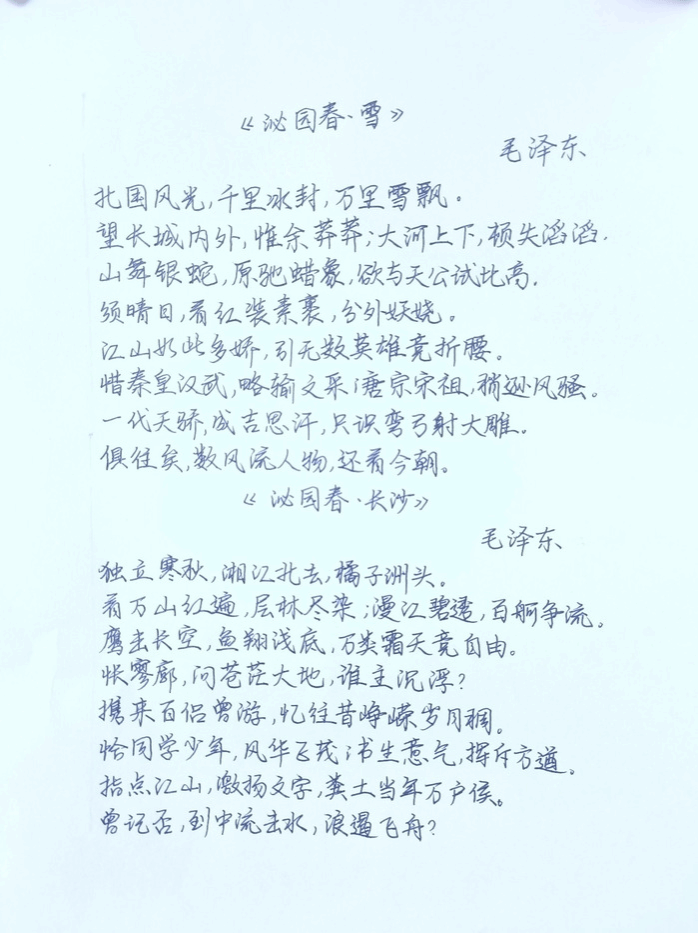 《沁园春·雪》
毛泽东
北国风光,千里冰封,万里雪飘。
望长城内外,惟余莽莽;大河上下,顿失滔滔.
山舞银蛇,原驰蜡象,欲与天公试比高.
须晴日,看红装素裹,分外妖娆。
江山如此多娇,引无数英雄竞折腰。
惜秦皇汉武,略输文采;唐宗宋祖,稍逊风骚。
一代天骄,成吉思汗,只识弯弓射大雕.
俱往矣,数风流人物,还看今朝。
《沁园春·长沙》
毛泽东
独立寒秋,湘江北去,橘子洲头。
看万山红遍,层林尽染;漫江碧透,百舸争流。
鹰击长空,鱼翔浅底,万类霜天竞自由。
怅寥廓,问苍茫大地,谁主沉浮?
携来百侣曾游,忆往昔峥嵘岁月稠。
恰同学少年,风华正茂;书生意气,挥斥方遒。
指点江山,激扬文字,粪土当年万户侯。
曾记否,到中流击水,浪遏飞舟?